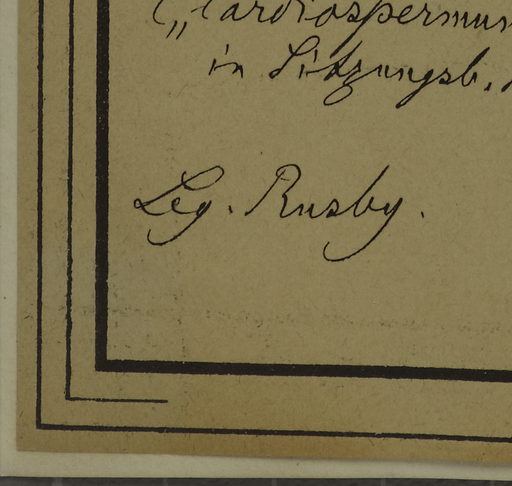 („Cardiospermum
in Sitzungsb.
Leg. Rusby.